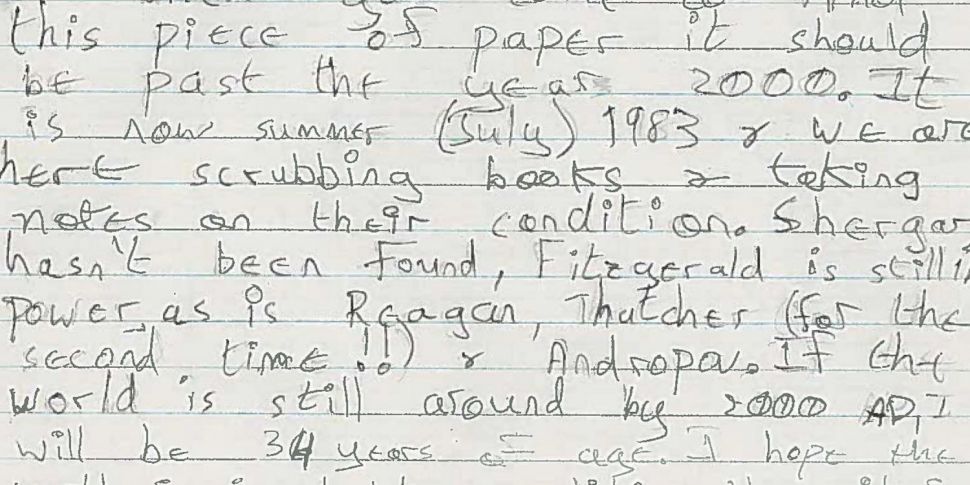 this piece of paper it should
be past the year 2000. It
is now summer (July) 1983 & we are
here scrubbing books & taking
notes on their condition. Shergar
hasn't been found, Fitzgerald is still in
power, as is Reagan, Thatcher (for the
second time!!) & Andropov. If the
world is still around by 2000 AD, I
will be 34 years of age. I hope the